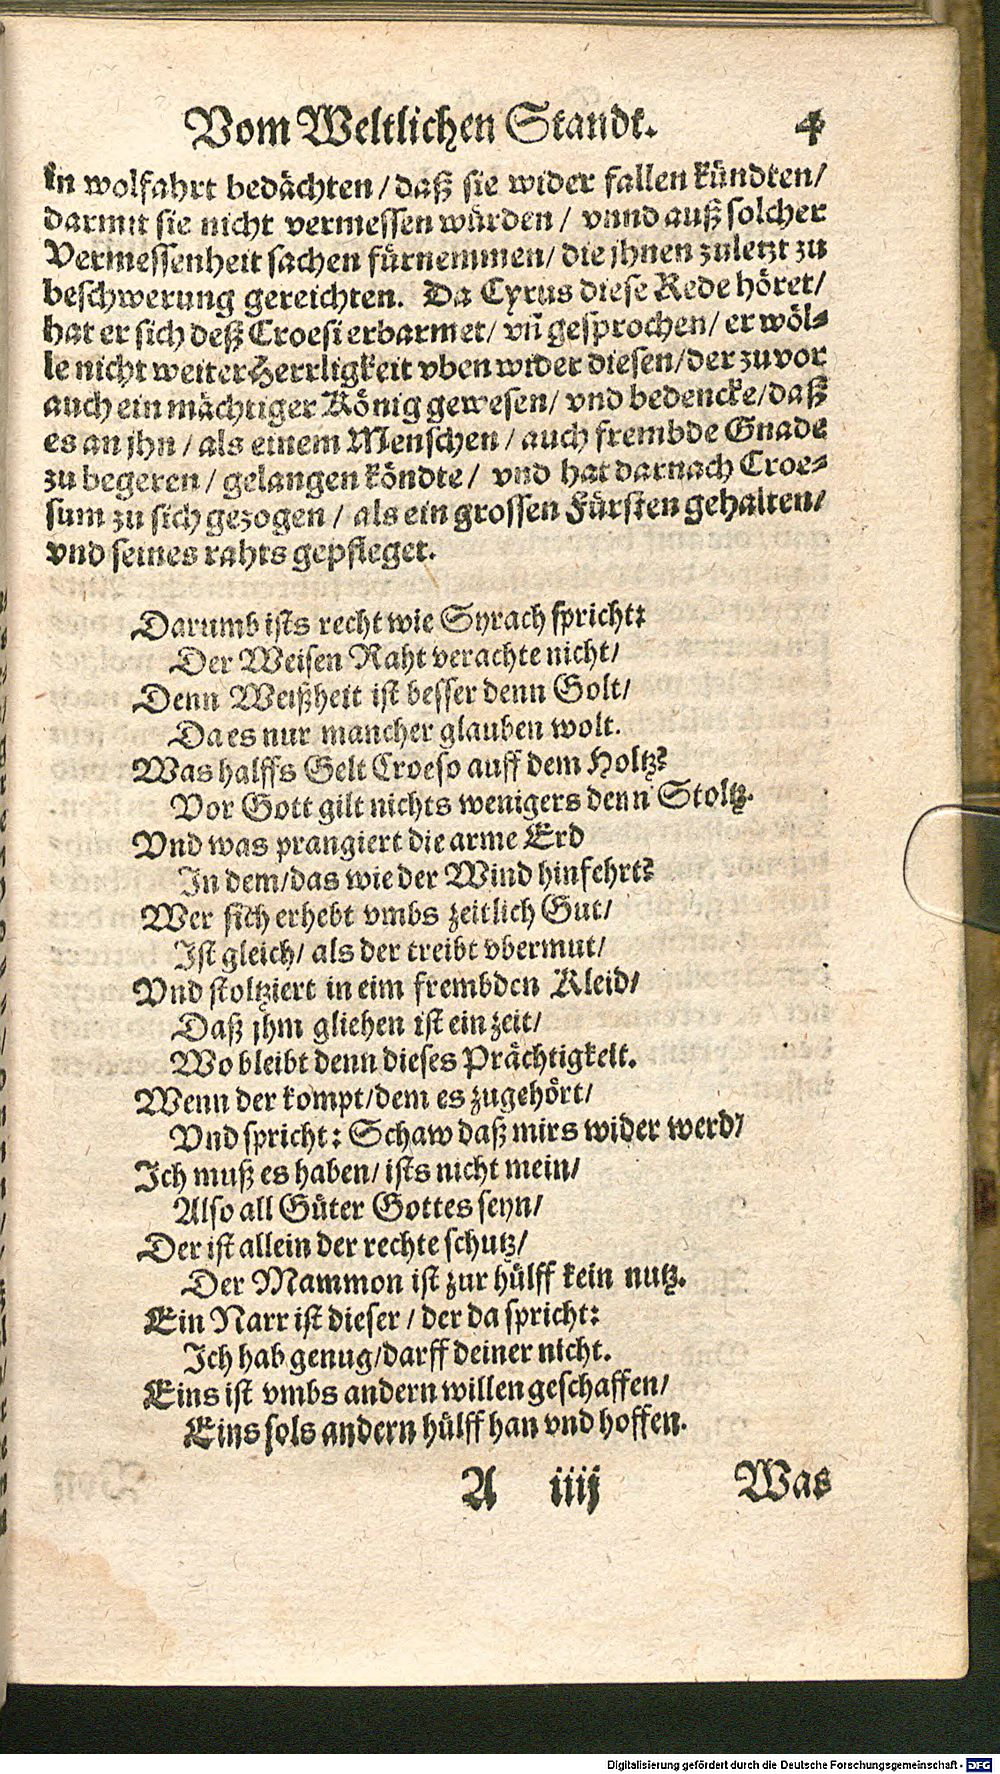 Vom Weltlichen Standt. 4
in wolfahrt bedächten / daß sie wider fallen kündten/
darmit sie nicht vermessen würden / vnnd auß solcher
Vermessenheit sachen fürnemmen/ die jhnen zuletzt zu
beschwerung gereichten. Da Cyrus diese Rede höret/
hat er sich deß Croesi erbarmet/ vñ gesprochen/ er wöl-
le nicht weiter Herrligkeit vben wider diesen/der zuvor
auch ein mächtiger König gewesen/ vnd bedencke/daß
es an jhn / als einem Menschen / auch frembde Gnade
zu begeren / gelangen köndte / vnd hat darnach Croe-
sum zu sich gezogen / als ein grossen Fürsten gehalten/
vnd seines rahts gepfleget.
Darumb ists recht wie Syrach spricht:
Der Weisen Raht verachte nicht/
Denn Weißheit ist besser denn Golt/
Da es nur mancher glauben wolt.
Was halffs Gelt Croeso auff dem Holtz?
Vor Gott gilt nichts wenigers denn Stoltz.
Vnd was prangiert die arme Erd
In dem/das wie der Wind hinfehrt?
Wer sich erhebt vmbs zeitlich Gut/
Ist gleich/ als der treibt vbermut/
Vnd stoltziert in eim frembden Kleid/
Daß jhm gliehen ist ein zeit/
Wo bleibt denn dieses Prächtigkeit.
Wenn der kompt/dem es zugehört/
Vnd spricht: Schaw daß mirs wider werd/
Ich muß es haben/ ists nicht mein/
Also all Güter Gottes seyn/
Der ist allein der rechte schutz/
Der Mammon ist zur hülff kein nutz.
Ein Narr ist dieser / der da spricht:
Ich hab genug/darff deiner nicht.
Eins ist vmbs andern willen geschaffen/
Eins sols andern hülff han vnd hoffen.
A iiij Was
Digitalisierung gefördert durch die Deutsche Forschungsgemeinschaft - DFG